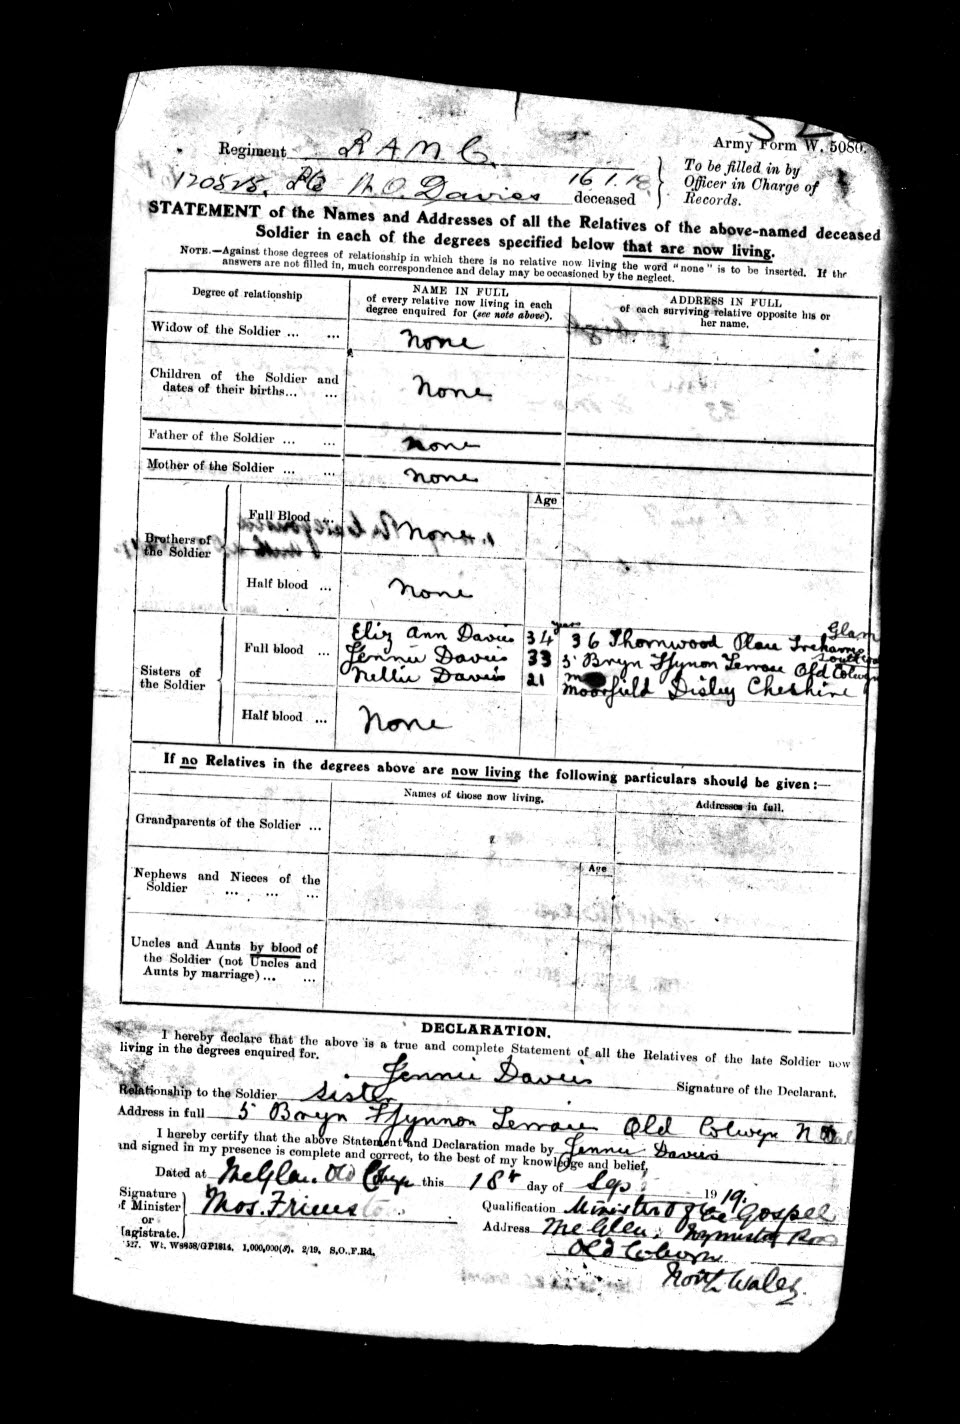 Army Form W. 5080.
Regiment R A M C.
To be filled in by
Officer in Charge of
Records.
120525. Pte Davies 16.1.18 deceased
STATEMENT of the Names and Addresses of all the Relatives of the above-named deceased
Soldier in each of the degrees specified below that are now living.
NOTE.—Against those degrees of relationship in which there is no relative now living the word "none" is to be inserted. If the
answers are not filled in, much correspondence and delay may be occasioned by the neglect.
Degree of relationship
NAME IN FULL
of every relative now living in each
degree enquired for (see note above).
ADDRESS IN FULL
of each surviving relative opposite his or
her name.
Widow of the Soldier ... ... None
Children of the Soldier and
dates of their births... ... None
Father of the Soldier ... ... none
Mother of the Soldier ... ... none
Age
Brothers of
the Soldier
Full Blood ... None
Half blood ... None
Sisters of
the Soldier
Full blood ...
Eliz Ann Davies 34 years 36 Thornwood Place Glam
Jennie Davies 33 5 Bryn Ffynon Terrace Old Colwyn
Nellie Davies 21 Moorfield Disley Cheshire
Half blood ... None
If no Relatives in the degrees above are now living the following particulars should be given:—
Names of those now living.
Addresses in full.
Grandparents of the Soldier ...
Nephews and Nieces of the
Soldier ... ... ...
Age
Uncles and Aunts by blood of
the Soldier (not Uncles and
Aunts by marriage)... ...
DECLARATION.
I hereby declare that the above is a true and complete Statement of all the Relatives of the late Soldier now
living in the degrees enquired for.
Jennie Davies Signature of the Declarant.
Relationship to the Soldier Sister
Address in full 5 Bryn Ffynnon Terrace Old Colwyn N
I hereby certify that the above Statement and Declaration made by Jennie Davies
and signed in my presence is complete and correct, to the best of my knowledge and belief,
Dated at Old Colwyn this 18th day of Sep 1919.
Signature
of Minister
or
Magistrate.
Qualification Minister of the Gospel
Address
Old Colwyn
North Wales.
527. Wt. W8858/GP1814. 1,000,000(5). 2/19. S.O.,F.Rd.